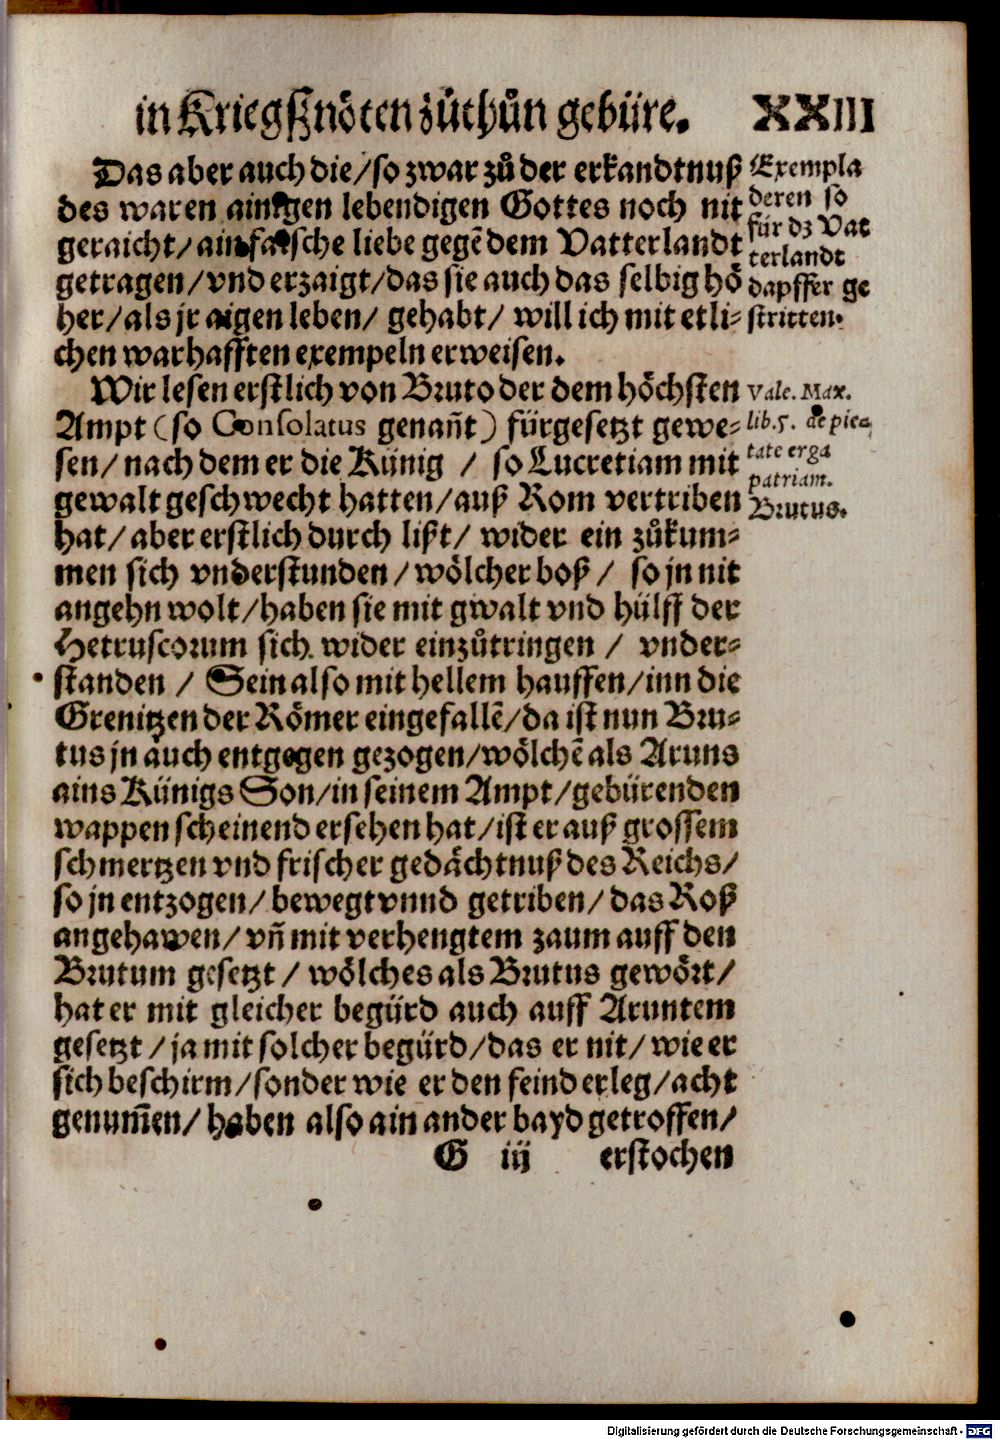 in Kriegßnöten zůthůn gebüre. XXIII
Das aber auch die/so zwar zů der erkandtnuß
des waren ainigen lebendigen Gottes noch nit
geraicht/ain falsche liebe gegẽ dem Vatterlandt
getragen/vnd erzaigt/das sie auch das selbig hö
her/als jr aigen leben/ gehabt/ will ich mit etli-
chen warhafften exempeln erweisen.
Exempla
deren so
für dz Vat
terlandt
dapffer ge
stritten.
Wir lesen erstlich von Bruto der dem höchsten
Ampt (so Consolatus genañt) fürgesetzt gewe-
sen/nach dem er die Künig / so Lucretiam mit
gewalt geschwecht hatten/auß Rom vertriben
hat/ aber erstlich durch lißt/ wider ein zůkum-
men sich vnderstunden/wölcher boß / so jn nit
angehn wolt/haben sie mit gwalt vnd hülff der
Hetruscorum sich wider einzůtringen / vnder-
standen / Sein also mit hellem hauffen/inn die
Grenitzen der Römer eingefallẽ/da ist nun Bru-
tus jn auch entgegen gezogen/wölchẽ als Aruns
ains Künigs Son/in seinem Ampt/gebürenden
wappen scheinend ersehen hat/ist er auß grossem
schmertzen vnd frischer gedächtnuß des Reichs/
so jn entzogen/bewegt vnnd getriben/das Roß
angehawen/vñ mit verhengtem zaum auff den
Brutum gesetzt / wölches als Brutus gewört/
hat er mit gleicher begürd auch auff Aruntem
gesetzt /ja mit solcher begürd/das er nit/wie er
sich beschirm/sonder wie er den feind erleg/acht
genum̃en/haben also ain ander bayd getroffen/
Vale. Max.
lib.5. de pie-
tate erga
patriam.
Brutus.
G iij erstochen
Digitalisierung gefördert durch die Deutsche Forschungsgemeinschaft - DFG